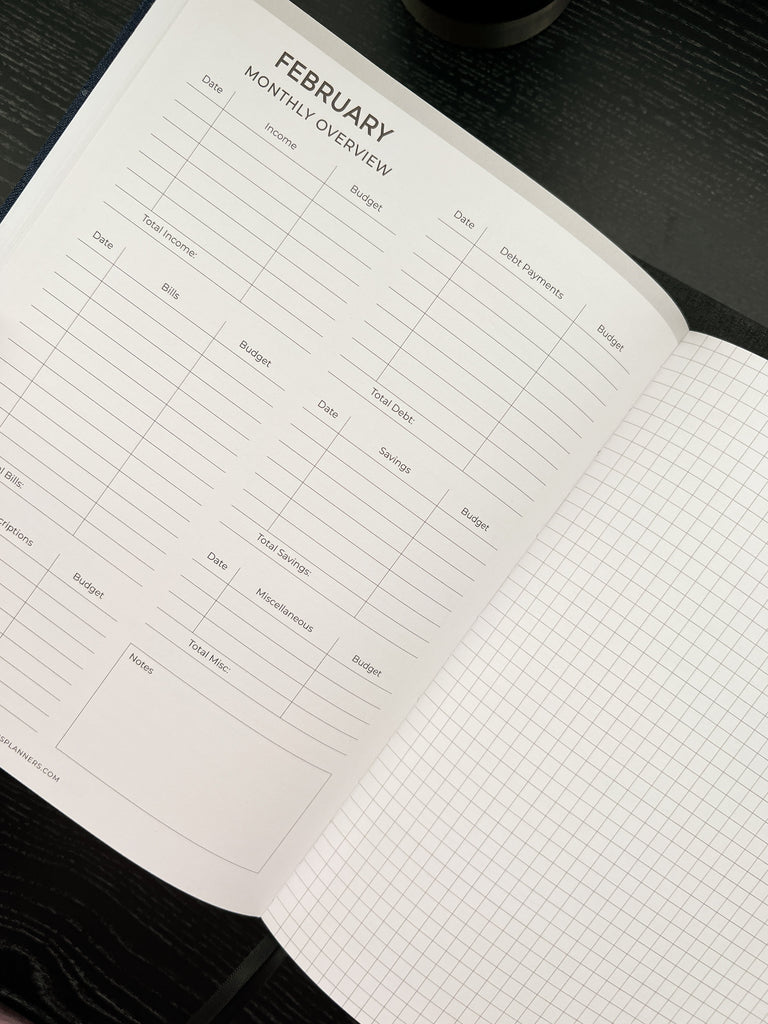 FEBRUARY
MONTHLY OVERVIEW
Date Income Budget
Total Income:
Date Bills Budget
Bills:
Budget
Date Debt Payments Budget
Total Debt:
Date Savings Budget
Total Savings:
Date Miscellaneous Budget
Total Misc:
Notes